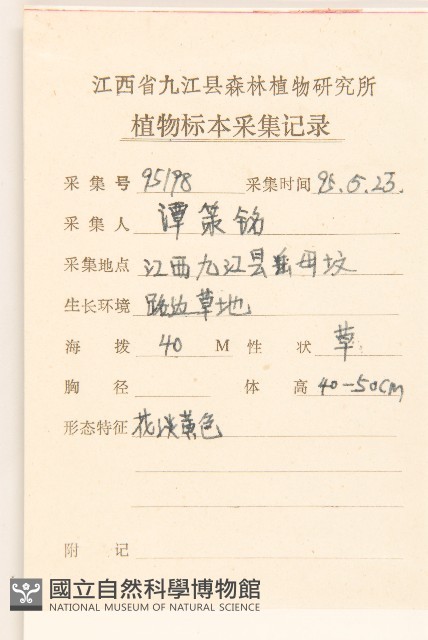 江西省九江县森林植物研究所
植物标本采集记录
采集号 95198 采集时间 95.5.23.
采集人 谭策铭
采集地点 江西九江县岳母坟
生长环境 路边草地
海拨 40 M 性状 草
胸径 体高 40-50CM
形态特征 花淡黄色
附记
國立自然科學博物館
NATIONAL MUSEUM OF NATURAL SCIENCE